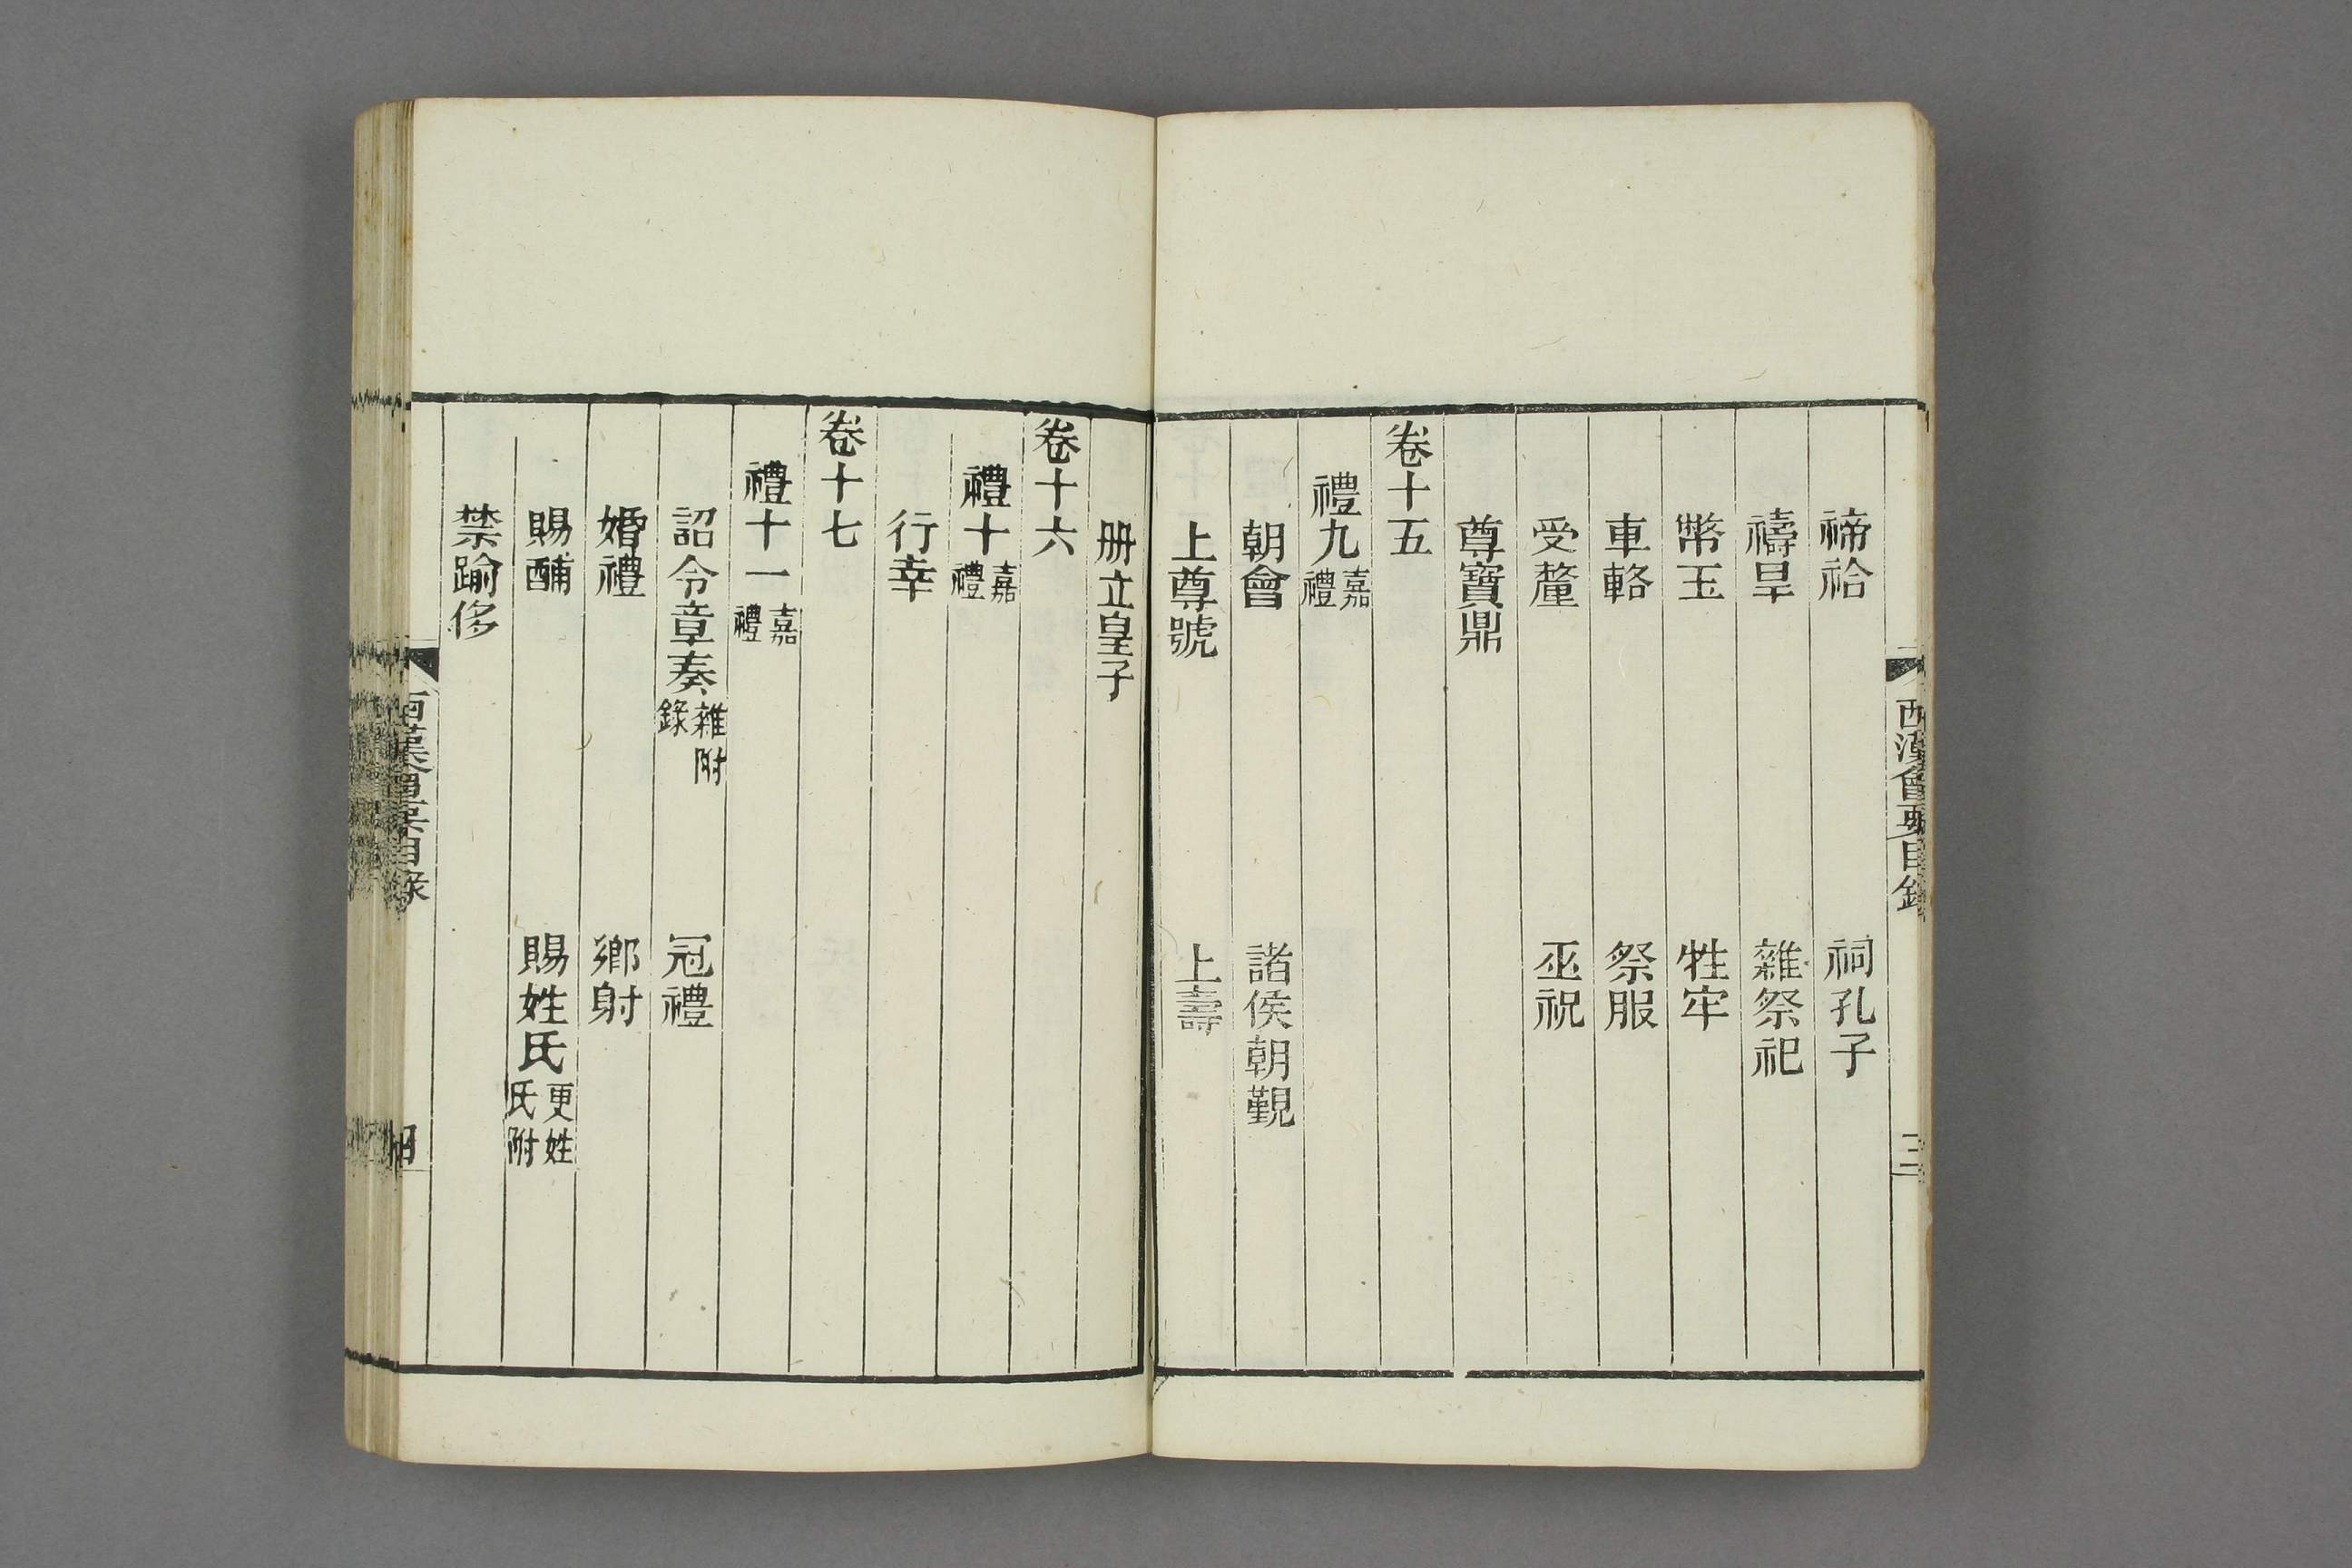 西漢會要目錄 三
禘祫 祠孔子
禱旱 雜祭祀
幣玉 牲牢
車輅 祭服
受釐 巫祝
尊寶鼎
卷十五
禮九嘉禮
朝會 諸侯朝覲
上尊號 上壽
册立皇子
卷十六
禮十嘉禮
行幸
卷十七
禮十一嘉禮
詔令章奏雜錄附 冠禮
婚禮 鄉射
賜酺 賜姓氏更姓氏附
禁踰侈
西漢會要目錄